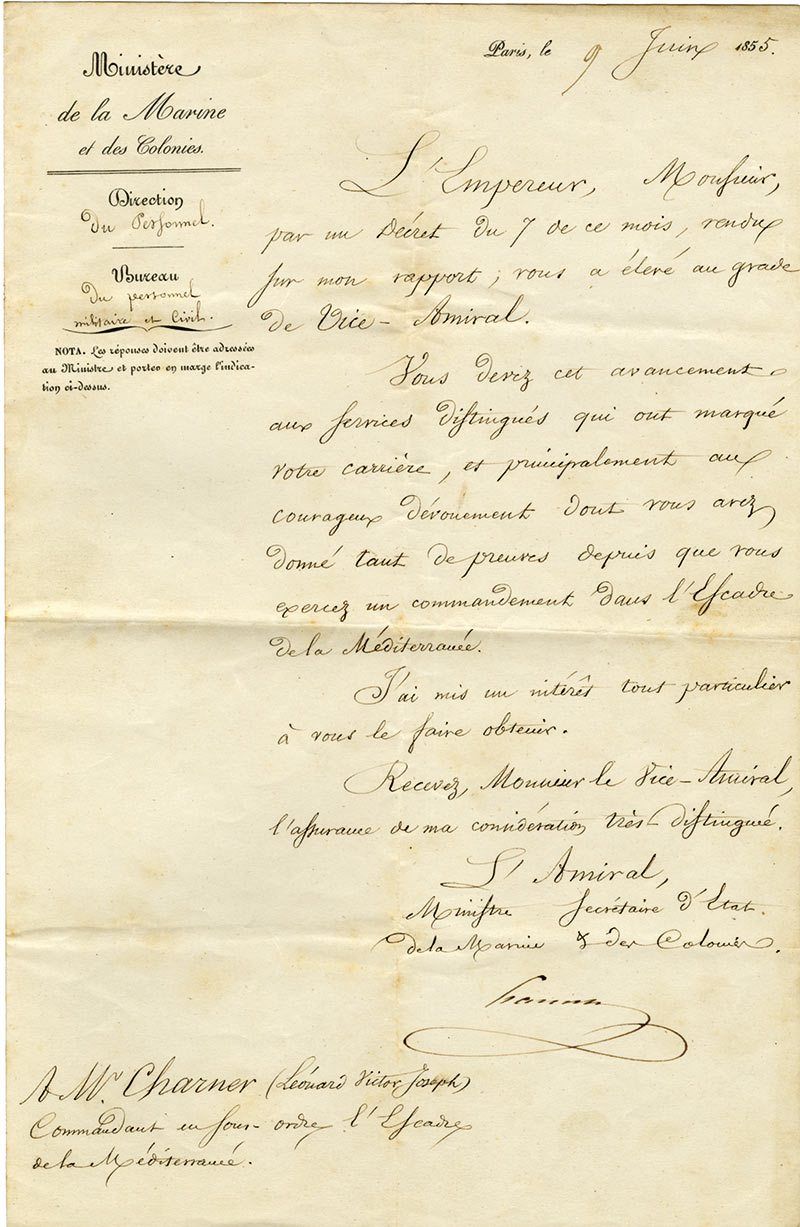 Paris, le 9 Juin 1855.
Ministère
de la Marine
et des Colonies.
Direction
du Personnel.
Bureau
du personnel
militaire et Civil.
NOTA. Les réponses doivent être adressées
au Ministre et porter en marge l'indica-
tion ci-dessus.
L'Empereur, Monsieur,
par un Décret du 7 de ce mois, rendu
sur mon rapport, vous a élevé au grade
de Vice-Amiral.
Vous devez cet avancement
aux services distingués qui ont marqué
votre carrière, et principalement au
courageux dévouement dont vous avez
donné tant de preuves depuis que vous
exercez un commandement dans l'Escadre
de la Méditerranée.
J'ai mis un intérêt tout particulier
à vous le faire obtenir.
Recevez, Monsieur le Vice-Amiral,
l'assurance de ma considération très-distinguée.
L'Amiral,
Ministre Secrétaire d'Etat
de la Marine & des Colonies.
A Mr. Charner (Léonard Victor Joseph)
Commandant en sous-ordre l'Escadre
de la Méditerranée.